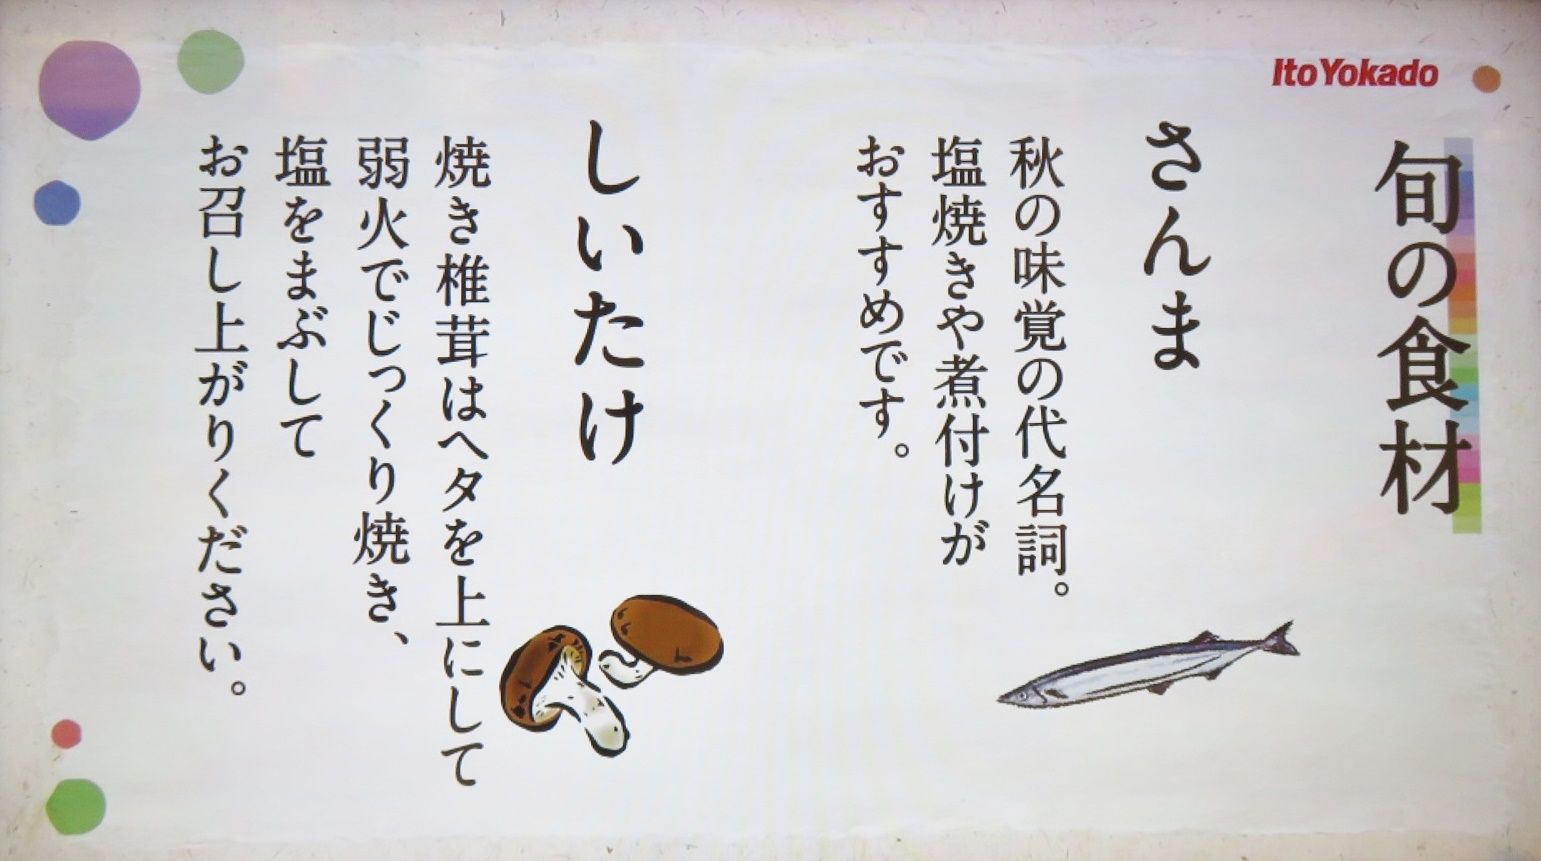 Ito Yokado
旬の食材
さんま
秋の味覚の代名詞。
塩焼きや煮付けが
おすすめです。
しいたけ
焼き椎茸はヘタを上にして
弱火でじっくり焼き、
塩をまぶして
お召し上がりください。